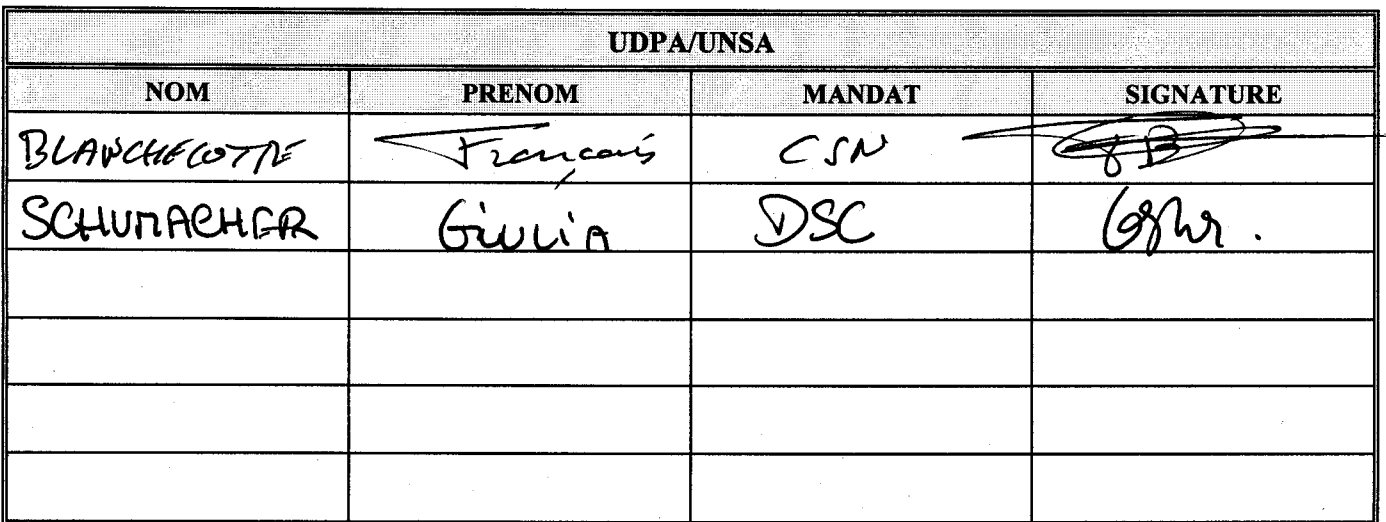 UDPA/UNSA
NOM PRENOM MANDAT SIGNATURE
BLANCHECOTTE Français CSN
SCHUMACHER Giulia DSC